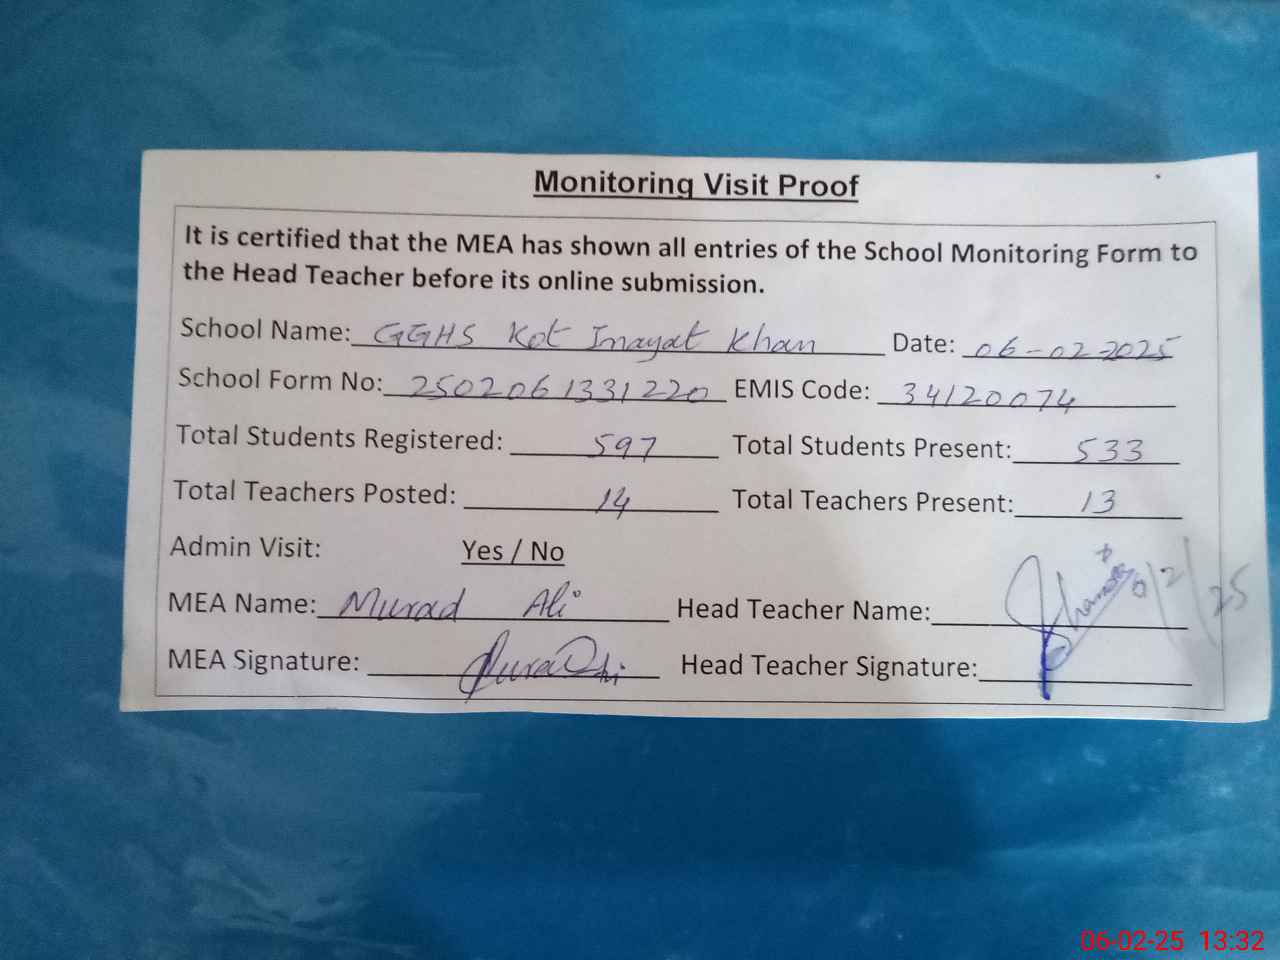 Monitoring Visit Proof
It is certified that the MEA has shown all entries of the School Monitoring Form to
the Head Teacher before its online submission.
School Name: GGHS Kot Inayat Khan Date: 06-02-2025
School Form No: 2502061331220 EMIS Code: 34120074
Total Students Registered: 597 Total Students Present: 533
Total Teachers Posted: 14 Total Teachers Present: 13
Admin Visit: Yes / No
MEA Name: Murad Ali Head Teacher Name: 6/2/25
MEA Signature: Head Teacher Signature:
06-02-25 13:32